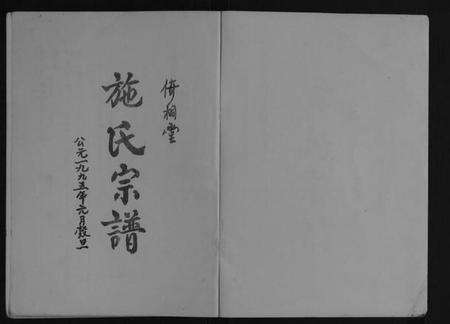 併相堂
施氏宗譜
公元一九九五年元月穀旦